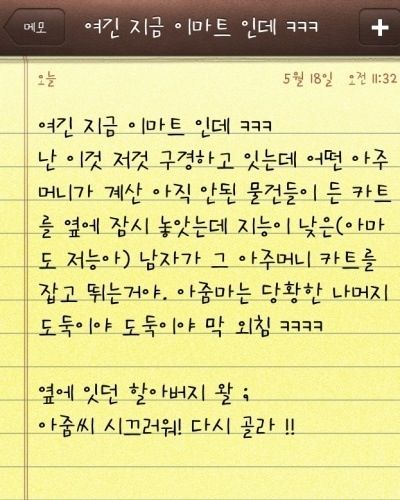 메모
여긴 지금 이마트 인데 ㅋㅋㅋ
+
오늘
5월 18일 오전 11:32
여긴 지금 이마트 인데 ㅋㅋㅋ
난 이것 저것 구경하고 잇는데 어떤 아주
머니가 계산 아직 안된 물건들이 든 카트
를 옆에 잠시 놓앗는데 지능이 낮은(아마
도 저능아) 남자가 그 아주머니 카트를
잡고 뛰는거야. 아줌마는 당황한 나머지
도둑이야 도둑이야 막 외침 ㅋㅋㅋㅋ
옆에 잇던 할아버지 왈 ;
아줌씨 시끄러워! 다시 골라 !!